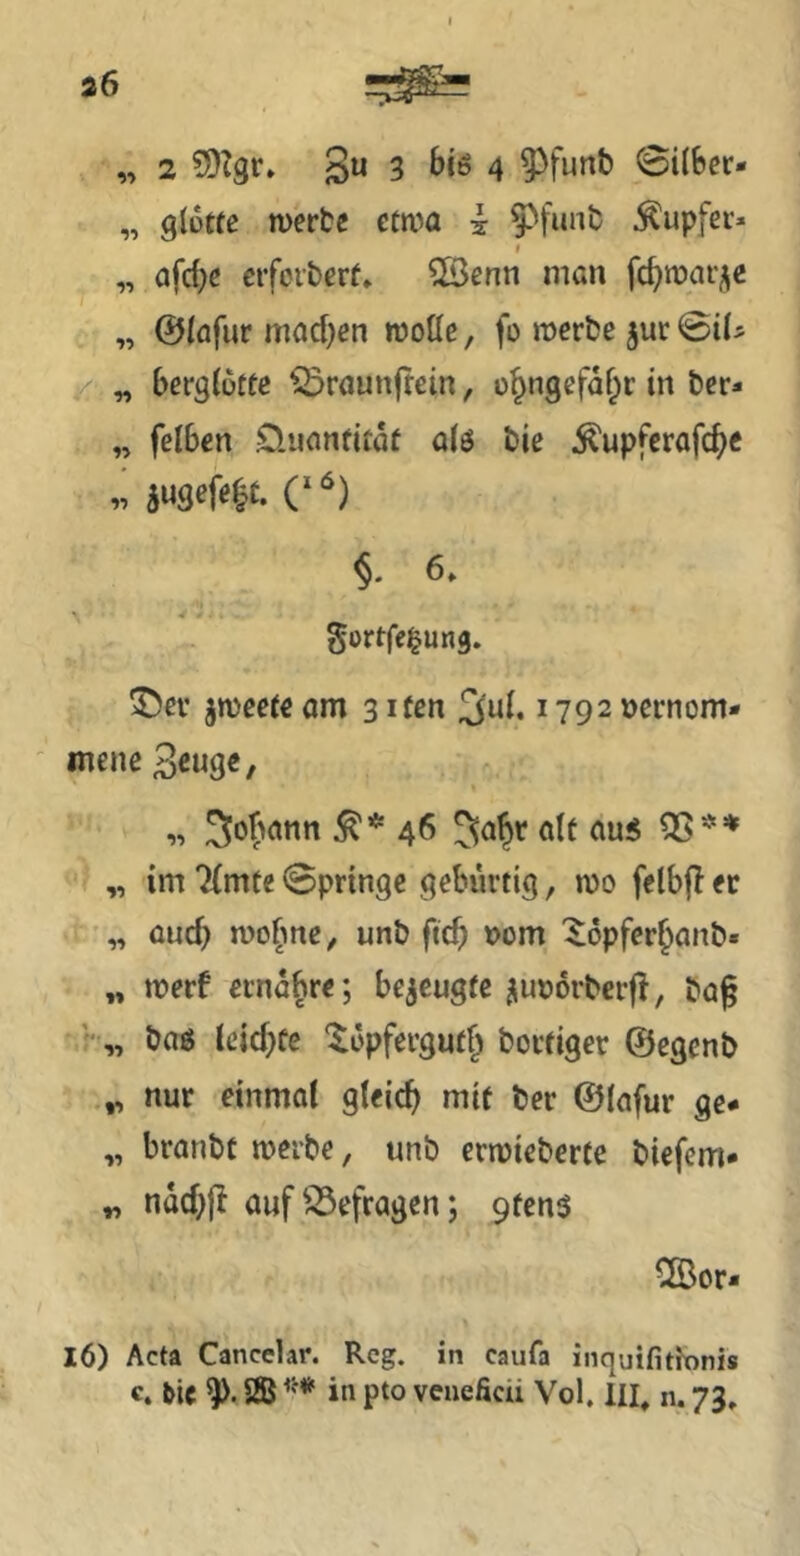 26
„ 2 Mgr. Zu 3 bis 4 Pfund Silber-
„ glötte werde etwa ½ Pfund Kupfer-
„ asche erfordert. Wenn man schwarze
„ Glasur machen wolle, so werde zur Sil-
„ berglötte Braunstein, ohngefähr in der-
„ selben Quantität als die Kupferasche
„ zugesetzt. (16)
§. 6.
Fortsetzung.
Der zweete am 31ten Jul. 1792 vernom-
mene Zeuge,
„ Johann K* 46 Jahr alt aus B**
„ im Amte Springe gebürtig, wo selbst er
„ auch wohne, und sich vom Töpferhand-
„ werk ernähre; bezeugte zuvörderst, daß
„ das leichte Töpferguth dortiger Gegend
„ nur einmal gleich mit der Glasur ge-
„ brandt werde, und erwiederte diesem-
„ nächst auf Befragen; 9tens
Wor-
16) Acta Cancelar. Reg. in causa inquisitionis
c. die P. W** in pto veneficii Vol. III. n. 73.